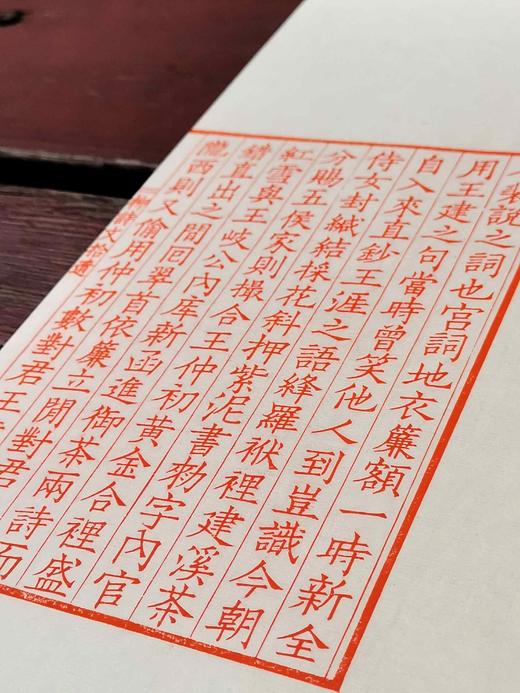 裝說之詞也宮詞地衣簾額一時新全
用王建之句當時曾笑他人到豈識今朝
自入來直鈔王涯之語絳羅袱裡建溪茶
侍女封緘結採花斜押紫泥書勑字內官
分賜五侯家則撮合王仲初黃金合裡盛
紅雪真王岐公內庫新函進御茶兩詩而
錯直出之間囘翠首依簾立閒對君
隴西則又偷用仲初數對君王
拾遺